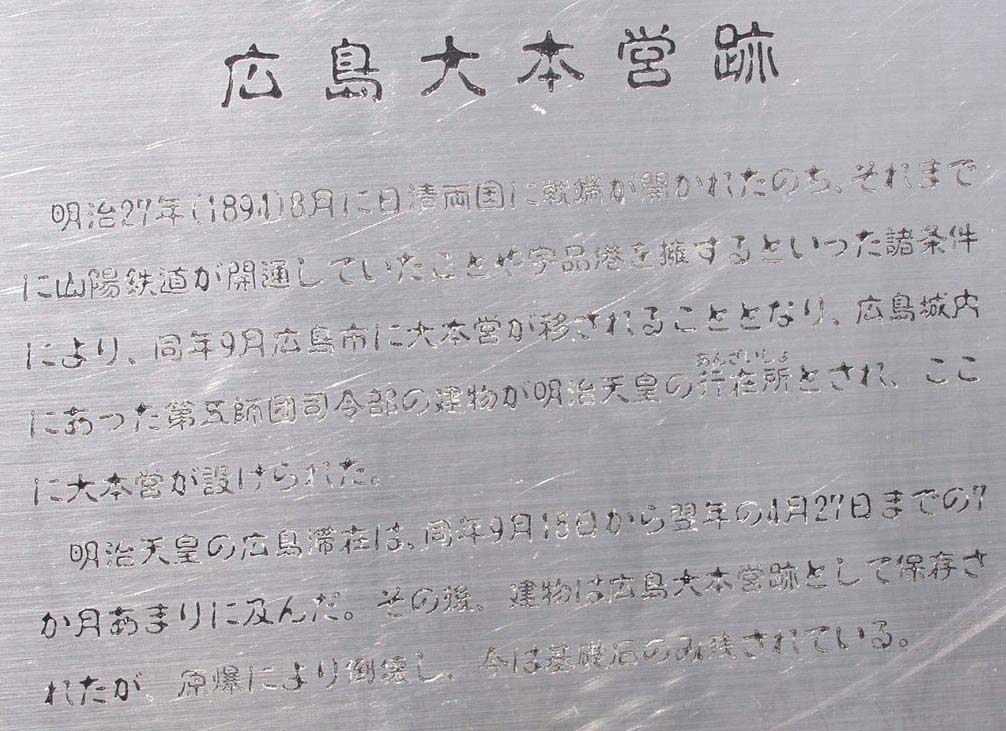 広島大本営跡
明治27年(1894)8月に日清両国に戦端が開かれたのち、それまで
に山陽鉄道が開通していたことや宇品港を擁するといった諸条件
により、同年9月広島市に大本営が移されることとなり、広島城内
あんざいしょ
にあった第五師団司令部の建物が明治天皇の行在所とされ、ここ
に大本営が設けられた。
明治天皇の広島滞在は、同年9月15日から翌年の4月27日までの7
か月あまりに及んだ。その後、建物は広島大本営跡として保存さ
れたが、原爆により倒壊し、今は基礎石のみ残されている。